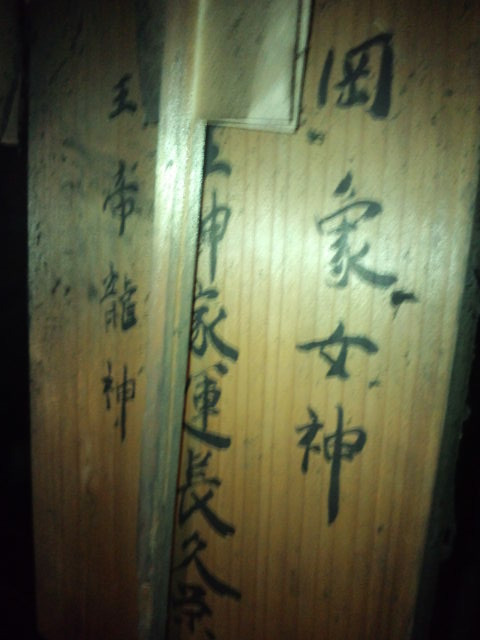 罔象女神
神家運長久栄
王帝龍神